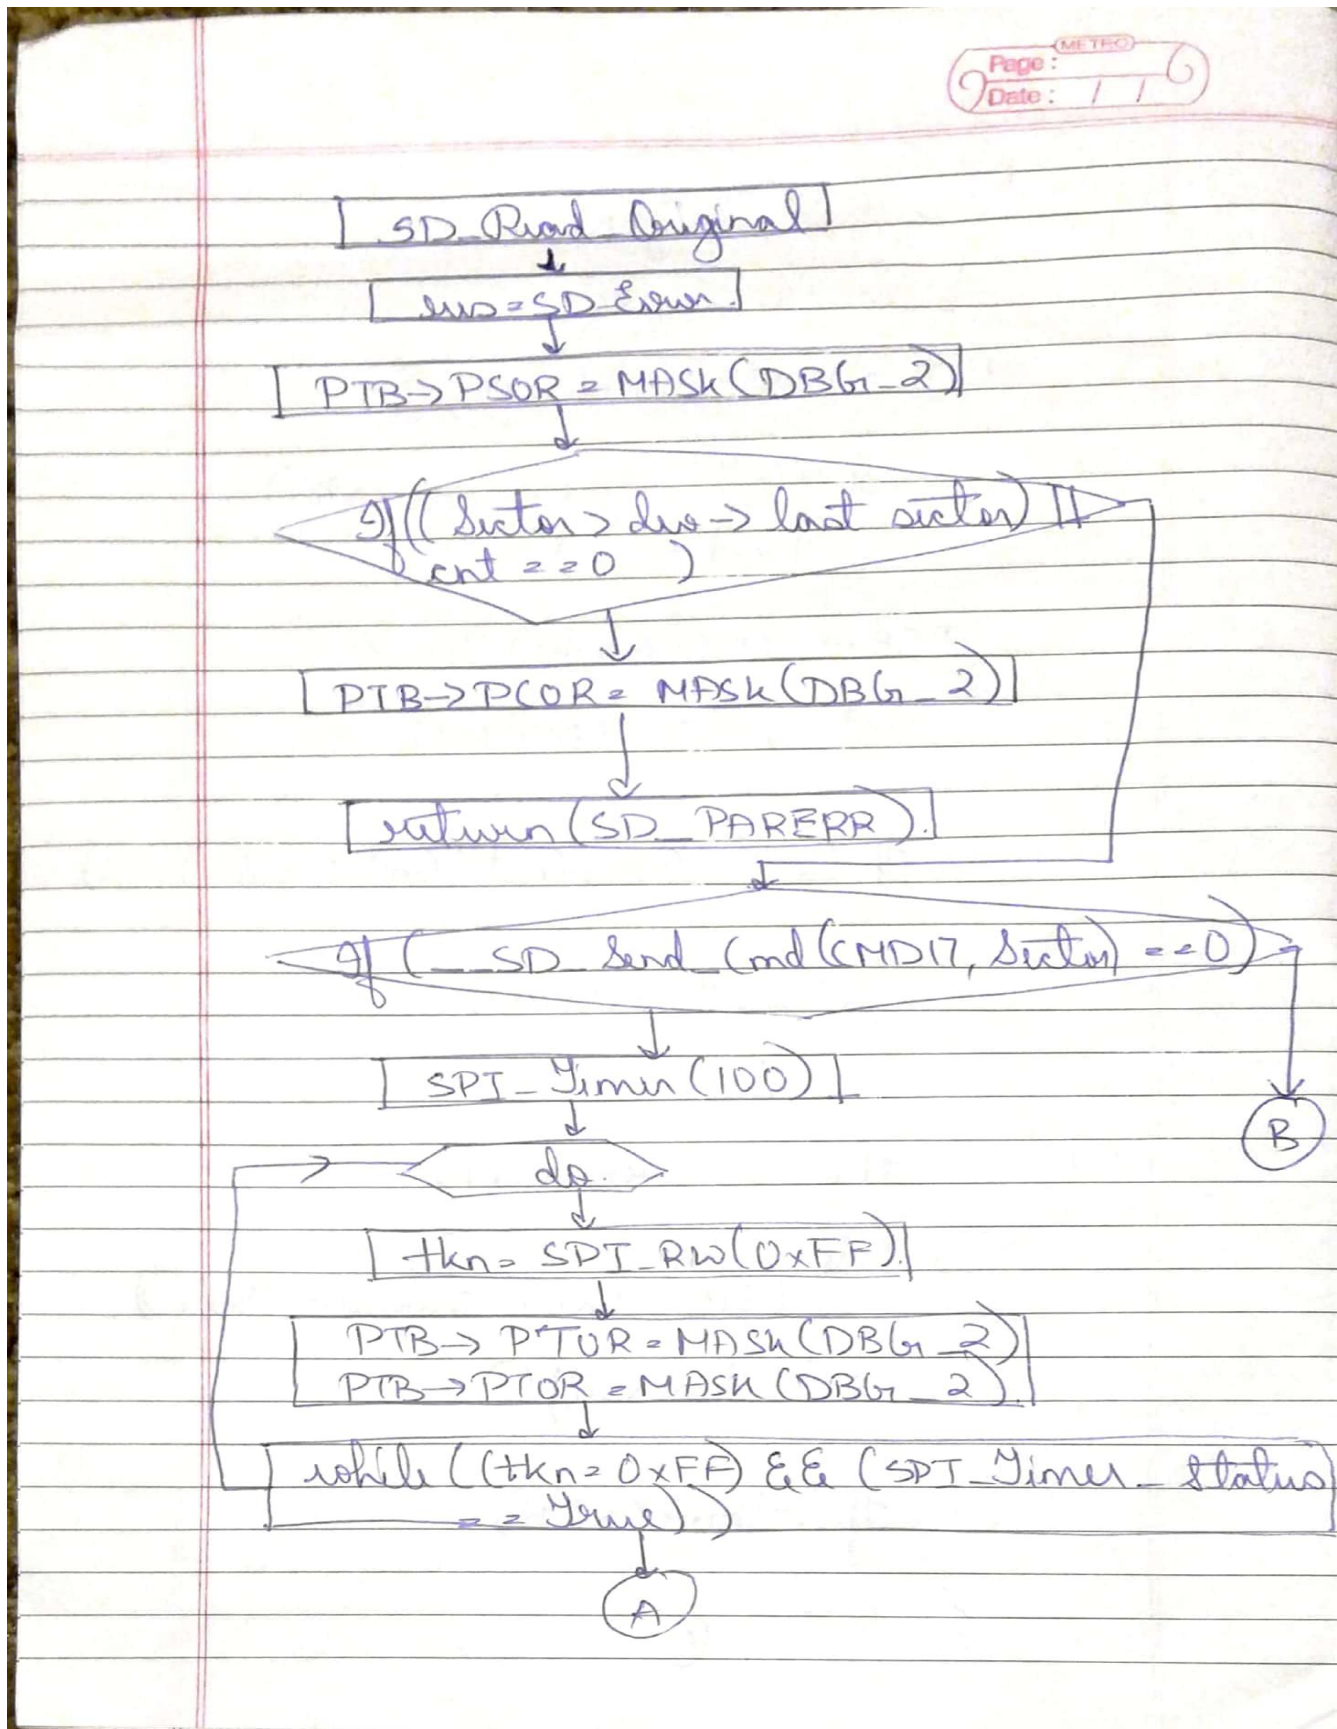 METRO
Page :
Date : / /
SD_Read_Original
res = SD_Error.
PTB->PSOR = MASK(DBG_2)
If((Sector > dev-> last sector) ||
cnt == 0 )
PTB->PCOR = MASK(DBG_2)
return(SD_PARERR).
If (__SD_Send_Cmd(CMD17, Sector) == 0)
SPI_Timer(100)
B
do.
tkn = SPI_RW(0xFF).
PTB-> PTOR = MASK(DBG_2)
PTB->PTOR = MASK(DBG_2).
while((tkn = 0xFF) && (SPI_Timer_Status
== True))
A